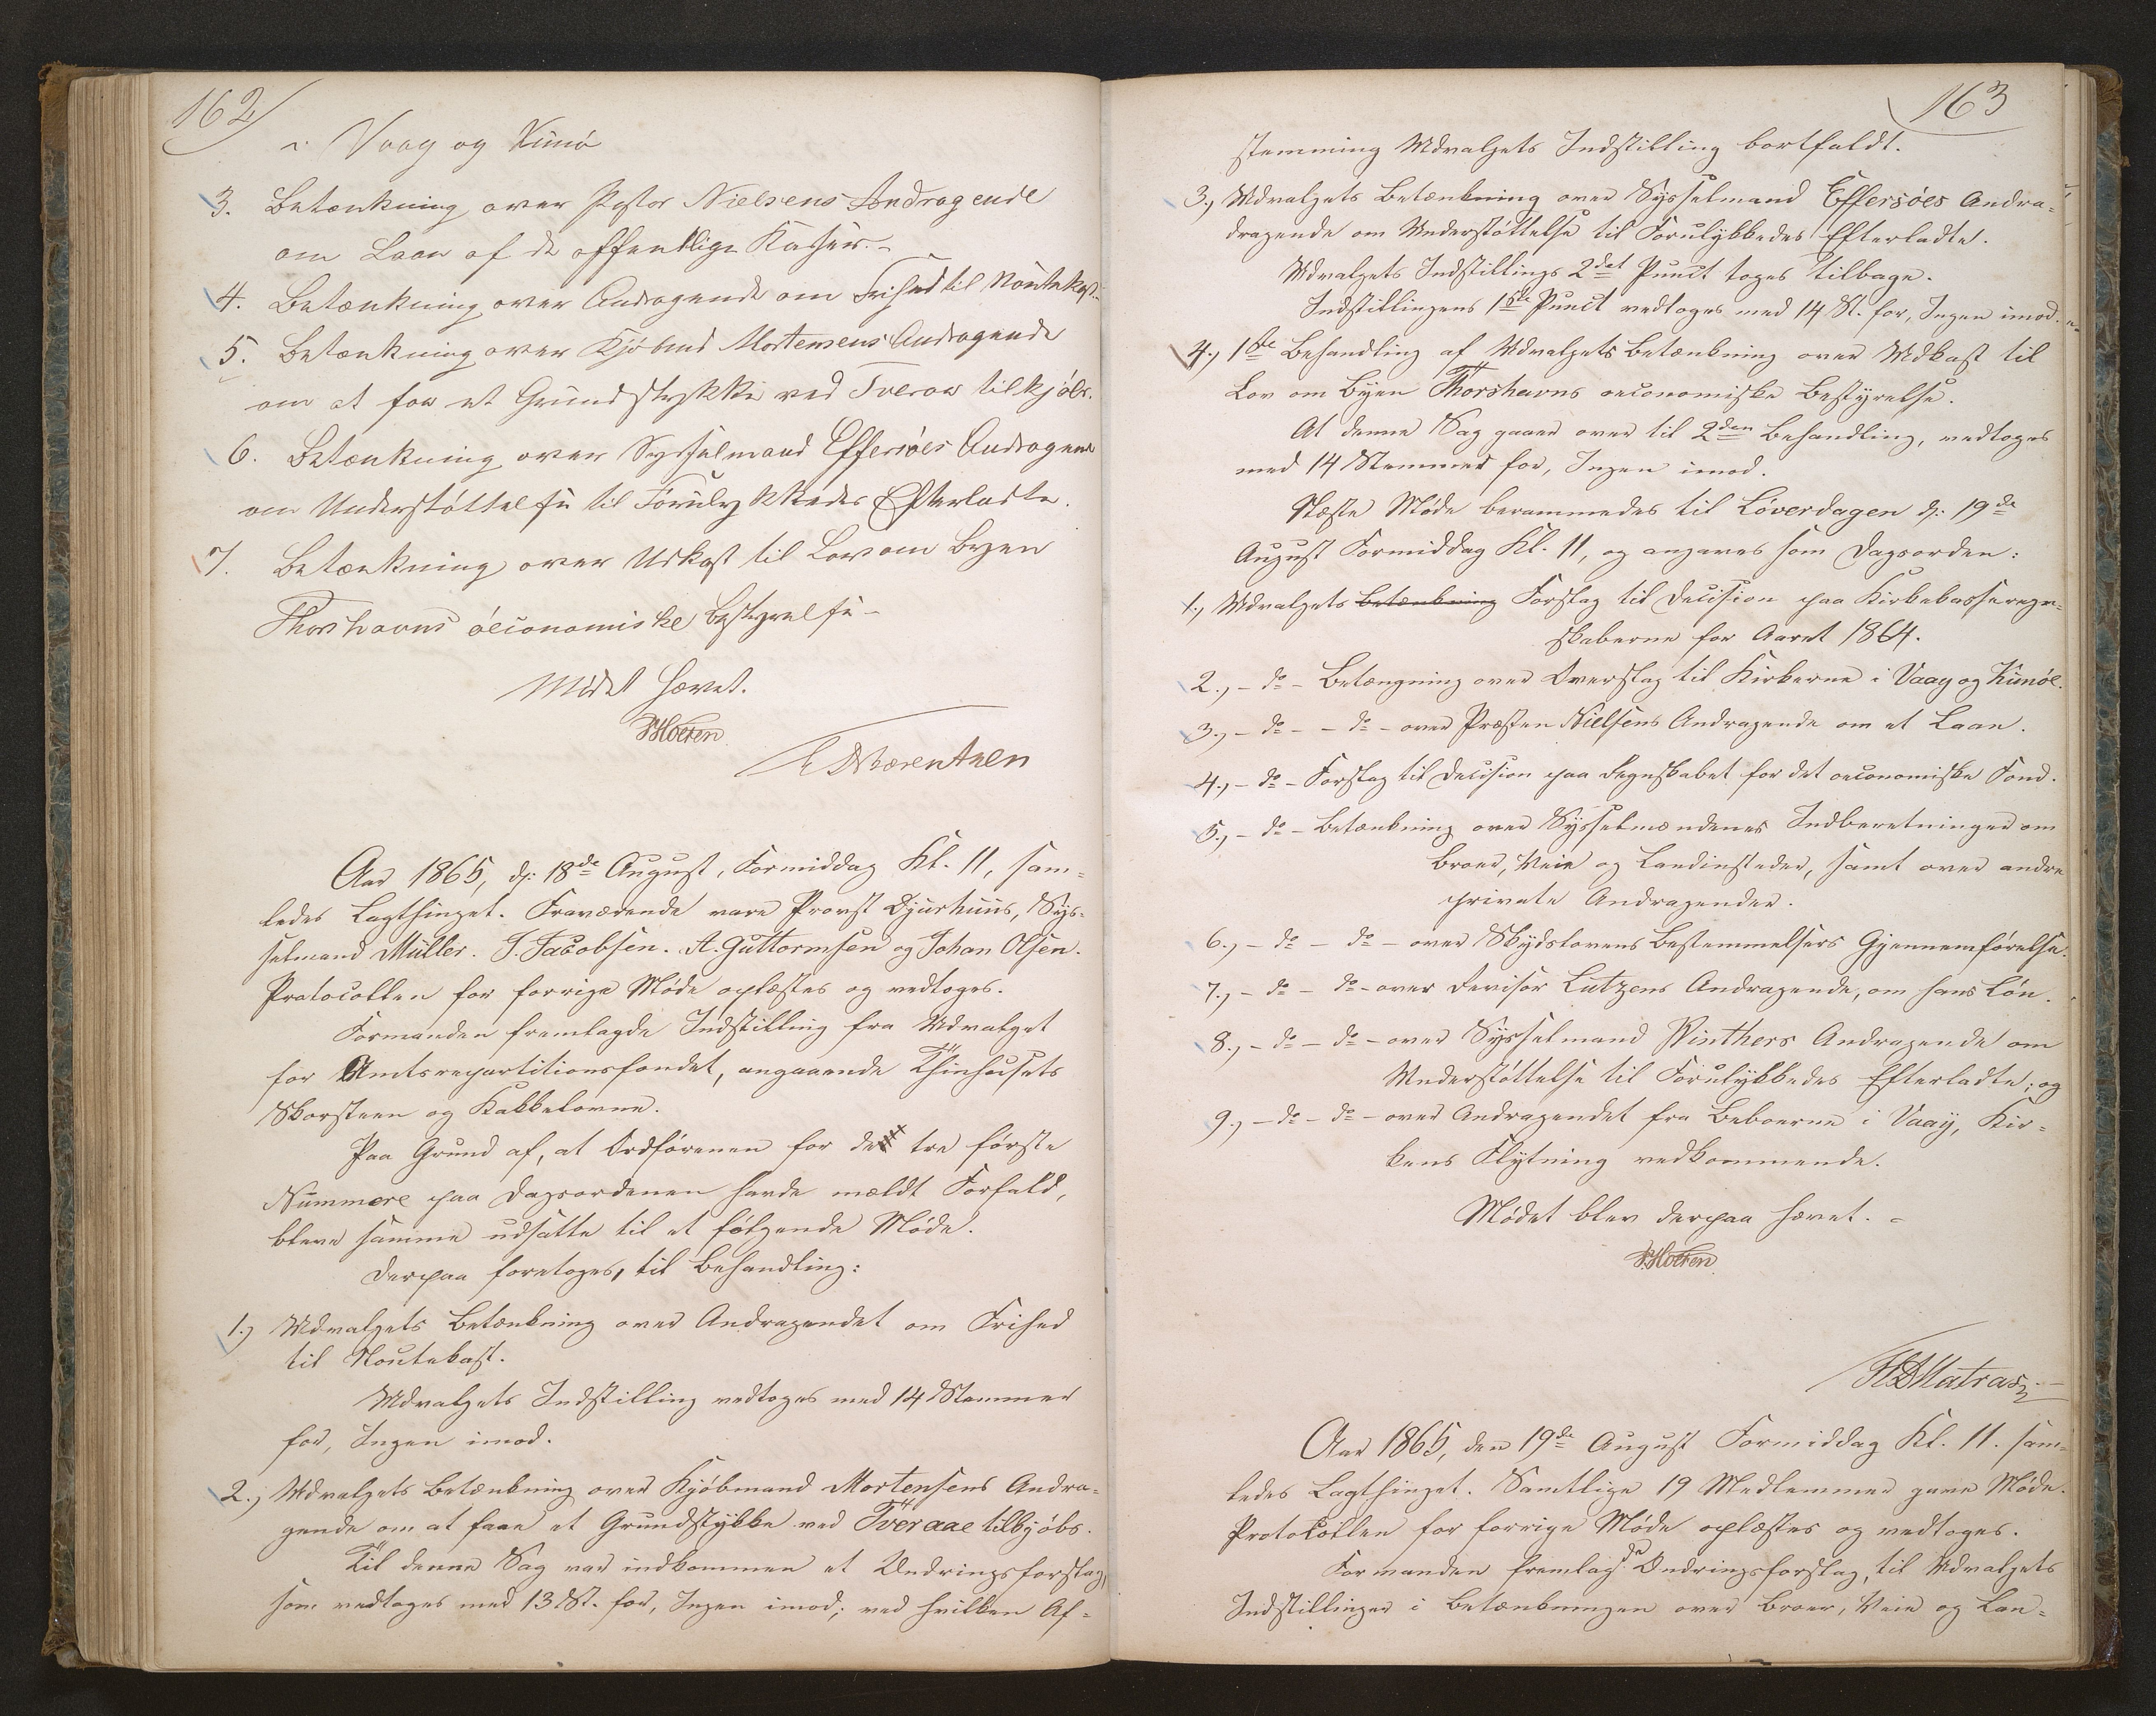 162
i Vaag og Kunø
3. Betænkning over Pastor Nielsens Andragende
om Laan af de offentlige Kasser.
4. Betænkning over Andragende om Frihed til Nøutekast.
5. Betænkning over Kjøbmd Mortensens Andragende
om at faa et Grundstykke ved Tveraa tilkjøbs.
6. Betænkning over Sysselmand Effersöes Andragende
om Understøttelse til Forulykkedes Efterladte.
7. Betænkning over Udkast til Lov om Byen
Thorshavns øeconomiske Bestyrelse
Mødet hævet.
Aar 1865, d: 18de August, Formiddag Kl. 11, sam-
ledes Lagthinget. Fraværende vare Provst Djurhuus, Sys-
selmand Müller. J. Jacobsen. A. Guttormsen og Johan Olsen.
Protocollen for forrige Møde oplæstes og vedtoges.
Formanden fremlagde Indstilling fra Udvalget
for Amtsrepartitionsfondet, angaaende Thinhusets
Skorsteen og Kakkelovne.
Paa Grund af, at Ordførenen for de tre første
Nummere paa Dagsordenen havde meldt Forfald,
bleve samme udsatte til et følgende Møde.
Derpaa foretoges, til Behandling:
1.) Udvalgets Betænkning over Andragendet om Frihed
til Noutekast.
Udvalgets Indstilling vedtoges med 14 Stemmer
for, Ingen imod.
2.) Udvalgets Betænkning over Kjøbmand Mortensens Andra-
gende om at faae et Grundstykke ved Tveraae tilkjøbs.
Til denne Sag var indkommen et Ændringsforslag,
som vedtoges med 13 St. for, Ingen imod; ved hvilken Af-
163
stemming Udvalgets Indstilling bortfaldt.
3.) Udvalgets Betænkning over Sysselmand Effersöes Andra-
dragende om Understøttelse til Forulykkedes Efterladte.
Udvalgets Indstillings 2det Punct toges tilbage.
Indstillingens 1ste Punct vedtoges med 14 St. for, Ingen imod.
4.) 1ste Behandling af Udvalgets Betænkning over Udkast til
Lov om Byen Thorshavns oeconomiske Bestyrelse.
At denne Sag gaaer over til 2den Behandling, vedtoges
med 14 Stemmer for, Ingen imod.
Næste Møde berammedes til Löverdagen d: 19de
August Formiddag Kl. 11, og angaves som Dagsorden:
1.) Udvalgets Betænkning Forslag til Decision paa Kirkekasseregn-
skaberne for Aaret 1864.
2.) - do - Betængning over Overslag til Kirkerne i Vaag og Kunøe.
3.) - do - - do - over Præsten Nielsens Andragende om et Laan.
4.) - do - Forslag til Decision paa Regnskabet for det oeconomiske Fond.
5.) - do - Betænkning over Sysselmændenes Indberetninger om
Broer, Veie og Landinsteder, samt over andre
private Andragender.
6.) - do - do - over Skydslovens Bestemmelsers Gjennemførelse.
7.) - do - do - over Revisor Lützens Andragende, om hans Løn.
8.) - do - do - over Sysselmand Winthers Andragende om
Understøttelse til Forulykkedes Efterladte; og
9.) - do - do - over Andragendet fra Beboerne i Vaag, Kir-
kens Flytning vedkommende.
Mødet blev derpaa hævet.
Aar 1865, den 19de August Formiddag Kl. 11. sam-
ledes Lagthinget. Samtlige 19 Medlemmer gave Møde.
Protokollen for forrige Møde oplæstes og vedtoges.
Formanden fremlagde Ændringsforslag, til Udvalgets
Indstillinger i Betænkningen over Broer, Veie og Lan-